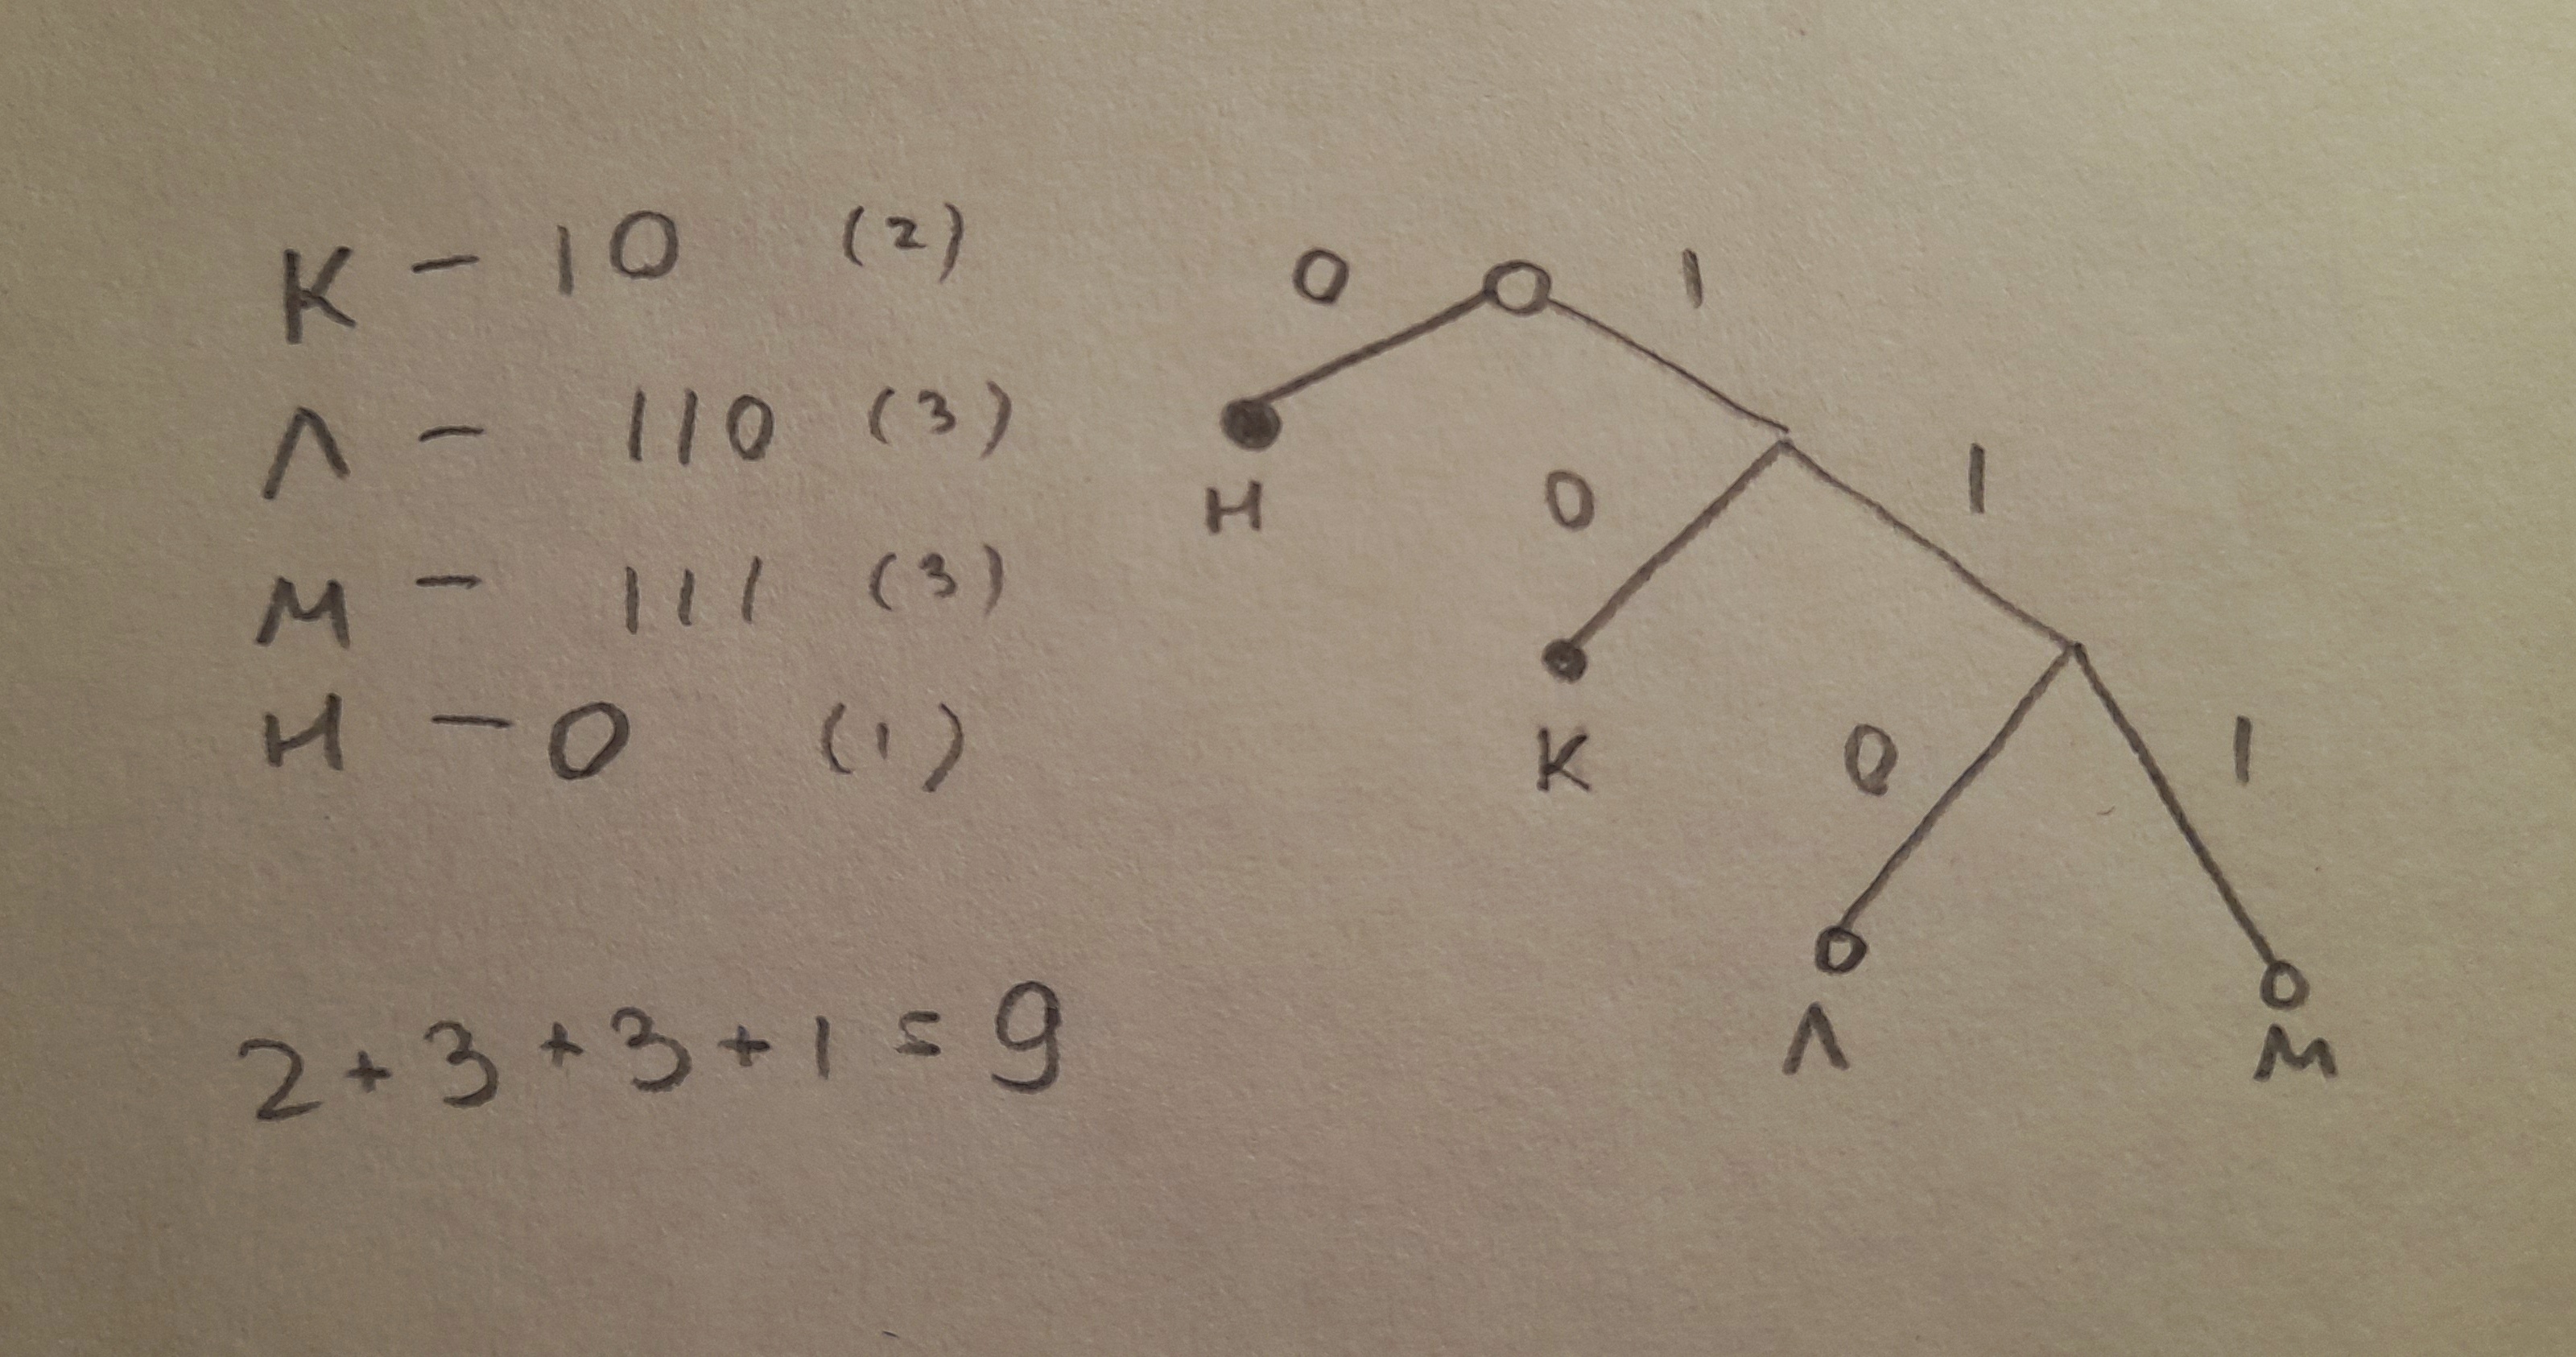 К - 10 (2)
Л - 110 (3)
М - 111 (3)
Н - 0 (1)
2+3+3+1=9
0 1
Н 0 1
К 0 1
Л М